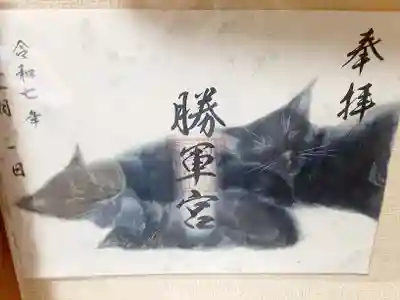 奉拝
勝軍宮
令和七年
月一日